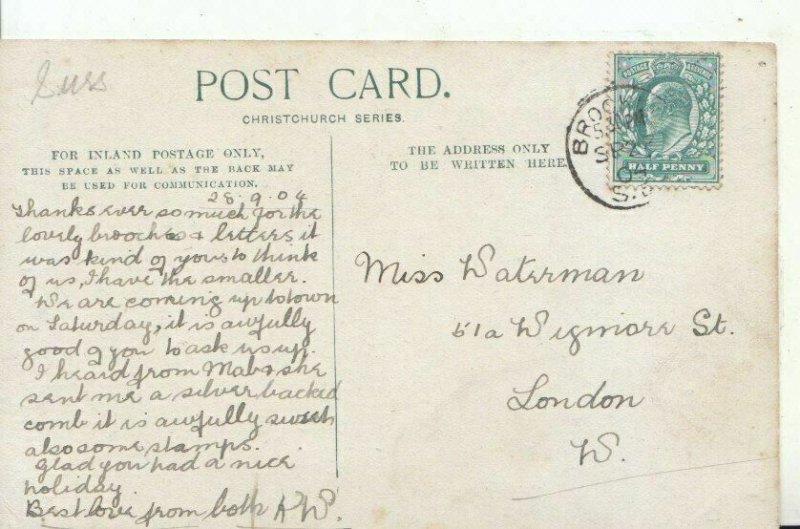 Suss
POST CARD.
CHRISTCHURCH SERIES.
FOR INLAND POSTAGE ONLY,
THIS SPACE AS WELL AS THE BACK MAY
BE USED FOR COMMUNICATION.
THE ADDRESS ONLY
TO BE WRITTEN HERE
POSTAGE
HALF PENNY
BROCK
S.E
28.9.04
Thanks ever so much for the
lovely brooches & letters, it
was kind of you to think
of us, I have the smaller.
We are coming up to town
on Saturday, it is awfully
good of you to ask us up.
I heard from Mabs she
sent me a silver backed
comb it is awfully sweet
also some stamps.
Glad you had a nice
holiday.
Best love from both AW.
Miss Waterman
51a Wigmore St.
London
W.